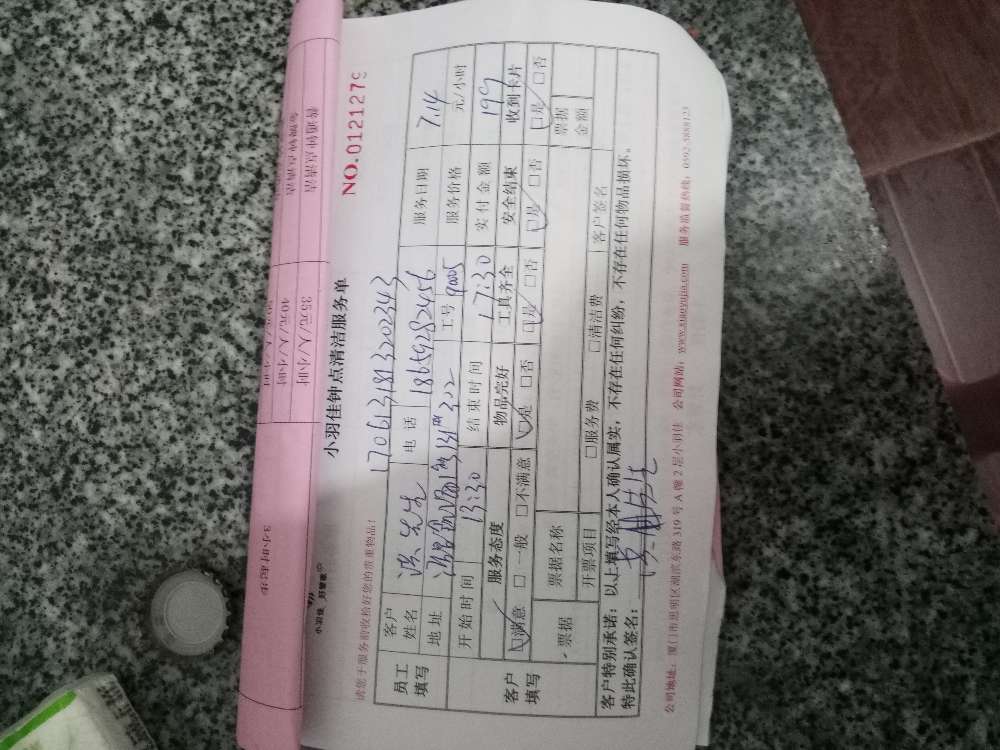 35元/人/小时
40元/人/小时
3小时起步
小羽佳钟点清洁服务单
NO.0121279
请您于服务前收捡好您的贵重物品！
1706131813202343
员工填写
客户姓名
洪先生
电话
18659282456
服务日期
7.14
地址
322
工号
9005
服务价格
元/小时
客户填写
开始时间
13:30
结束时间
17:30
实付金额
199
服务态度
物品完好
工具齐全
安全结束
收到卡片
☑满意 □一般 □不满意
☑是 □否
☑是 □否
☑是 □否
☑是 □否
票据
票据名称
票据金额
开票项目
□服务费
□清洁费
客户签名
客户特别承诺：以上填写经本人确认属实，不存在任何纠纷，不存在任何物品损坏。
特此确认签名：
公司地址：厦门市思明区湖滨东路319号A幢2层小羽佳 公司网站：www.xiaoyujia.com 服务监督热线：0592-5888123